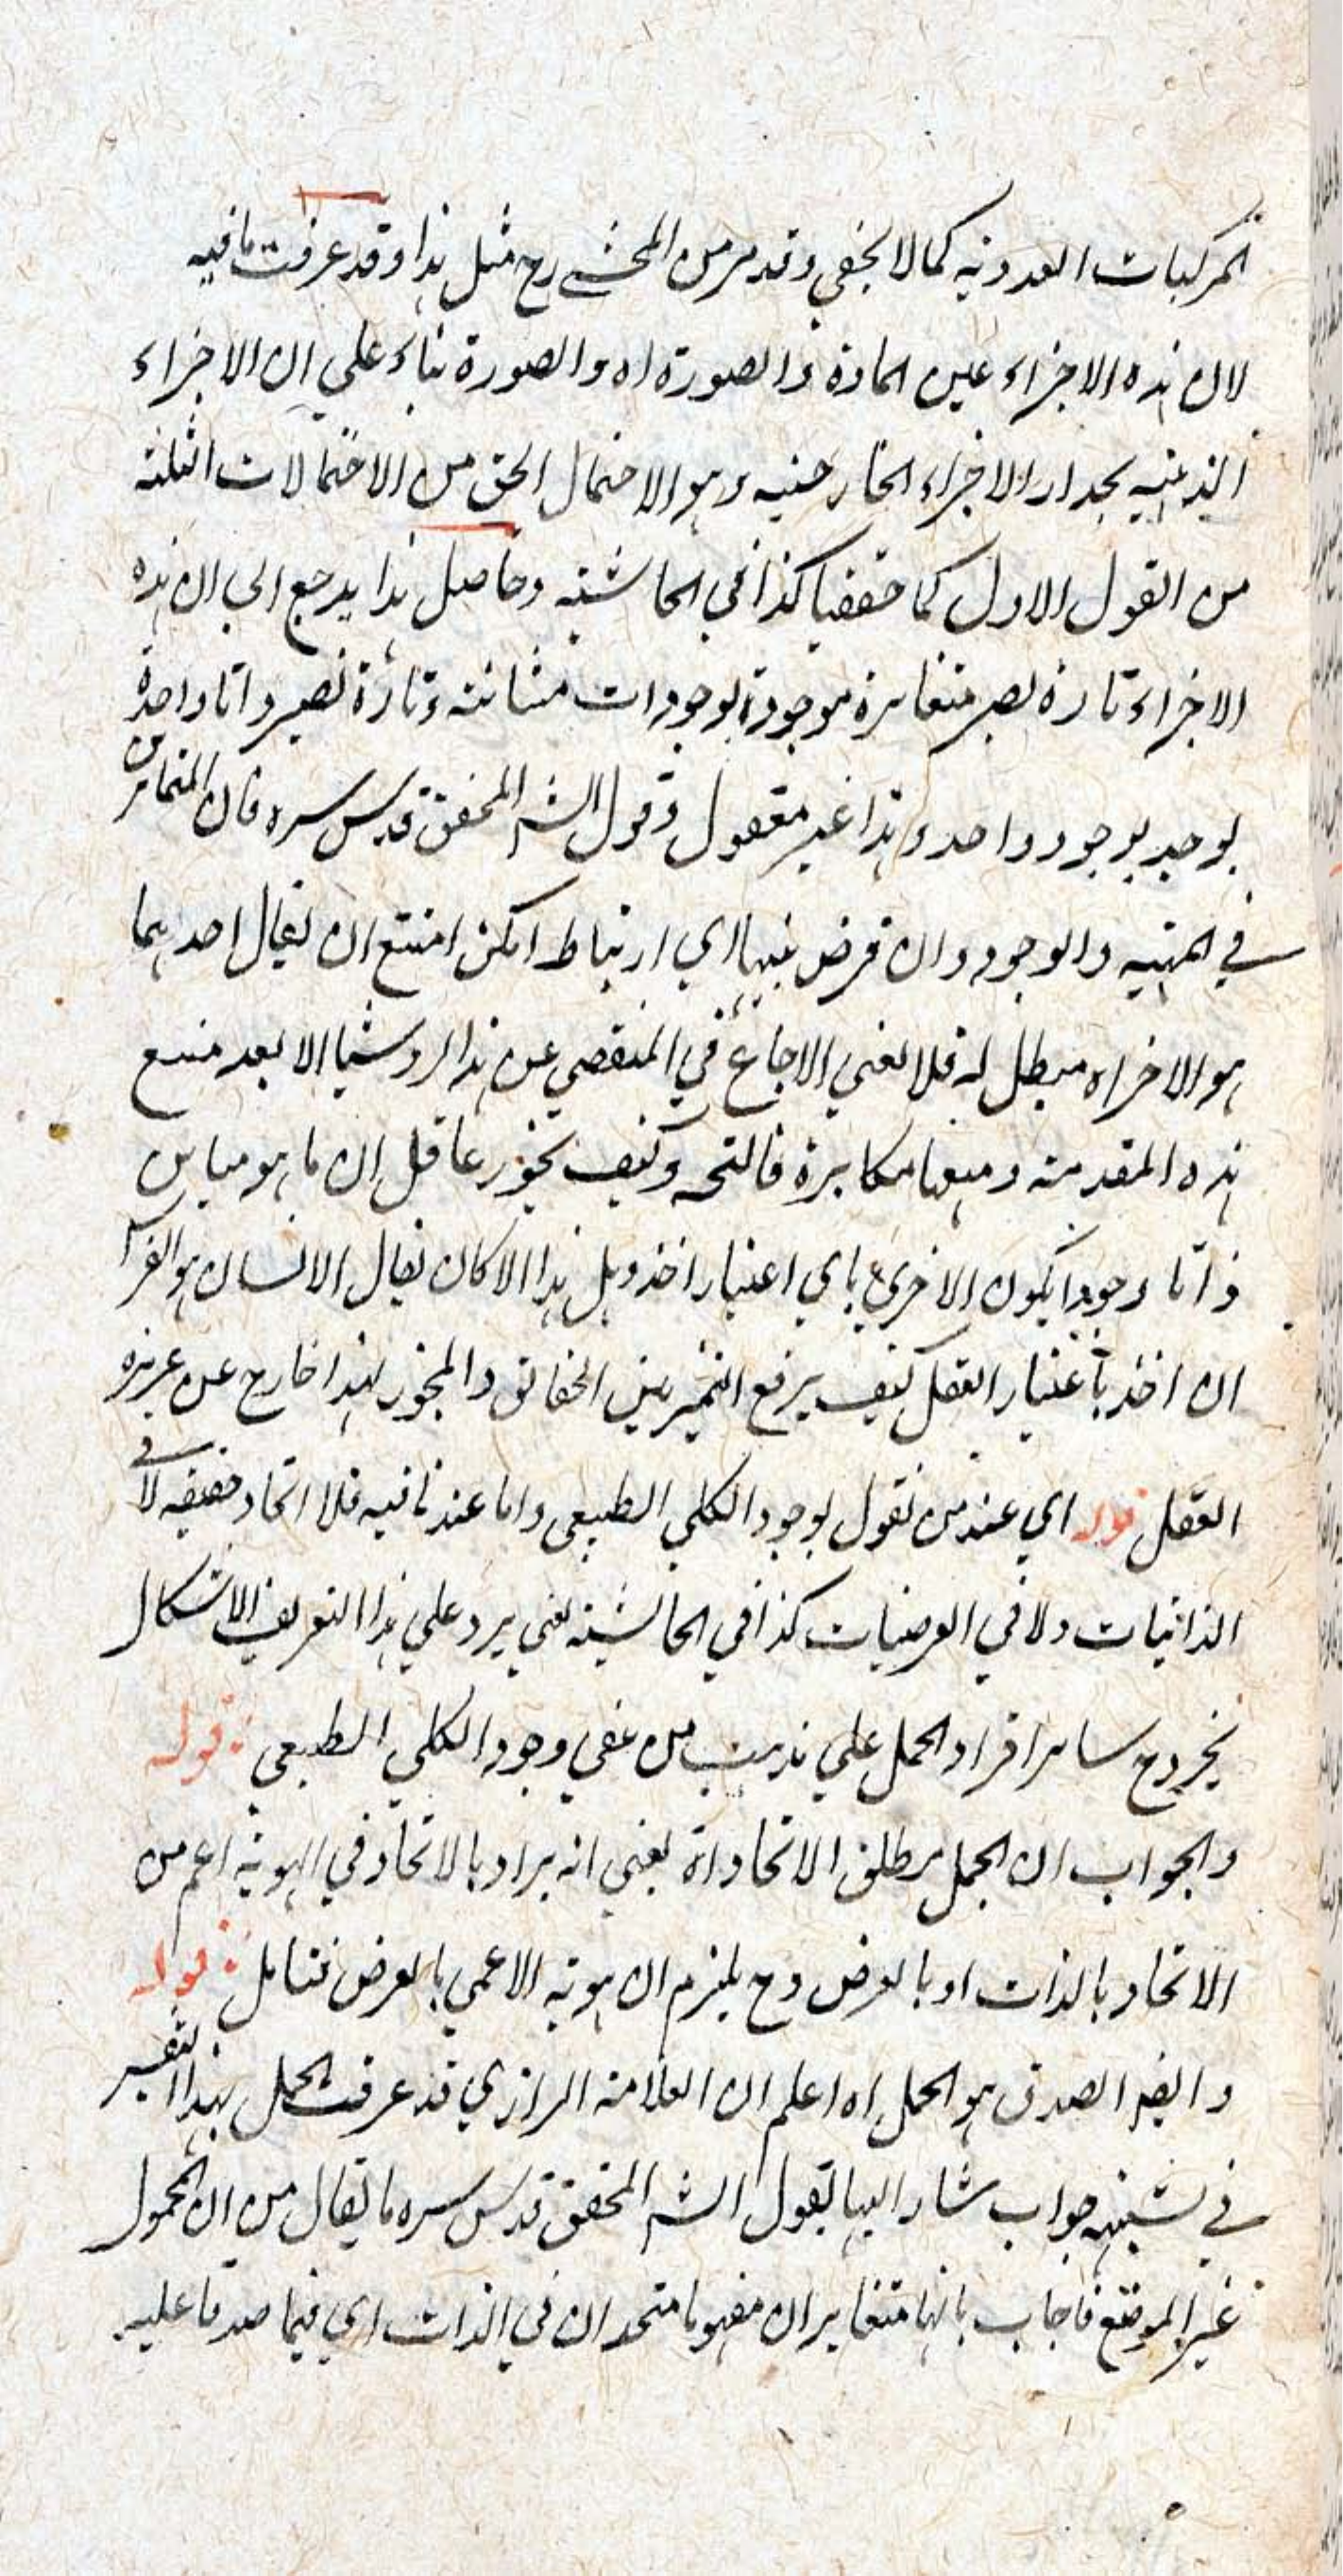 المركبات العددية كما لا يخفى وقد مر من المحشي رح مثل هذا وقد عرفت ما فيه
لان هذه الاجزاء عين المادة والصورة اه والصورة بناء على ان الاجزاء
الذهنية بحذاء الاجزاء الخارجية وهو الاحتمال الحق من الاحتمالات الثلثة
من القول الاول كما حققنا كذا في الحاشية وحاصل هذا يرجع الى ان هذه
الاجزاء تارة تصير متغايرة موجودة بوجودات متباينة وتارة تصير ذاتا واحدة
يوجد بوجود واحد وهذا غير معقول وقول الشـ المحقق قدس سره فان المتمايزين
في المهية والوجود وان فرض بينهما اي ارتباط امكن امتنع ان يقال احدهما
هو الاخر اه مبطل له فلا يغني الارجاع في التفصي عن هذا الرد شيئا الا بعد منع
هذه المقدمة ومنعها مكابرة وكيف يجوز عاقل ان ما هو مباين
ذاتا ووجودا يكون الاخر باي اعتبار اخذ وهل هذا الا كان يقال الانسان هو الفرس
ان اخذ باعتبار العقل كيف يرفع التميز بين الحقائق والمجوز لهذا خارج عن غريزة
العقل قوله اي عند من يقول بوجود الكلي الطبيعي واما عند نافيه فلا اتحاد حقيقة لا في
الذاتيات ولا في العرضيات كذا في الحاشية يعني يرد على هذا التعريف الاشكال
بخروج سائر افراد الحمل على مذهب من نفى وجود الكلي الطبيعي قوله
والجواب ان الحمل مطلق الاتحاد اه يعني انه يراد بالاتحاد في الهوية اعم من
الاتحاد بالذات او بالعرض وح يلزم ان هوية الاعمى بالعرض فتامل قوله
وايضا الصدق هو الحمل اه اعلم ان العلامة الرازي قد عرفت الحمل بهذا التفسير
في جواب شار اليها بقول الشـ المحقق قدس سره ما يقال من ان المحمول
غير الموضوع فاجاب بانهما متغايران مفهوما متحدان في الذات اي فيما صدقا عليه